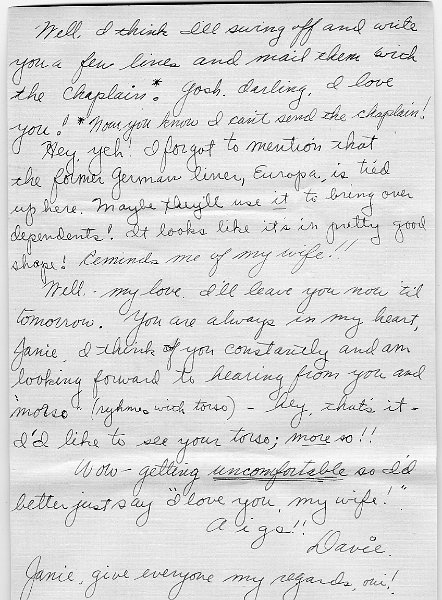 Well, I think I'll swing off and write
you a few lines and mail them with
the chaplain.* Gosh, darling, I love
you! *Now you know I can't send the chaplain!
Hey, yeh! I forgot to mention that
the former German liner, Europa, is tied
up here. Maybe they'll use it to bring over
dependents! It looks like it's in pretty good
shape! Reminds me of my wife!!
Well - my love. I'll leave you now 'til
tomorrow. You are always in my heart,
Janie, I think of you constantly and am
looking forward to hearing from you and
moreso - (ryhmes with torso) - hey, that's it -
I'd like to see your torso; more so!!
Wow - getting uncomfortable so I'd
better just say "I love you, my wife!"
A i g s!!
Davie.
Janie, give everyone my regards, oui!